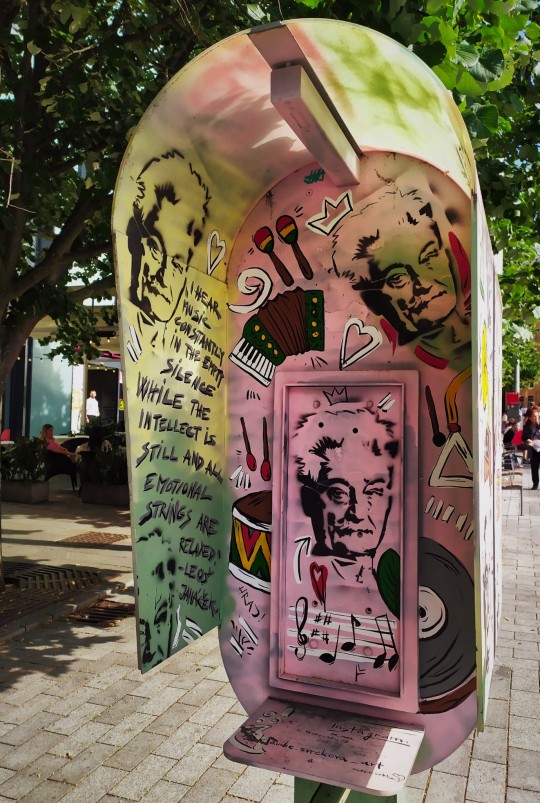 I HEAR
MUSIC
CONSTANTLY
IN THE
SILENCE
WHILE THE
INTELLECT IS
STILL AND ALL
EMOTIONAL
STRINGS ARE
RELAXED
-LEOŠ
JANÁČEK
HRAJ!
Instagram: